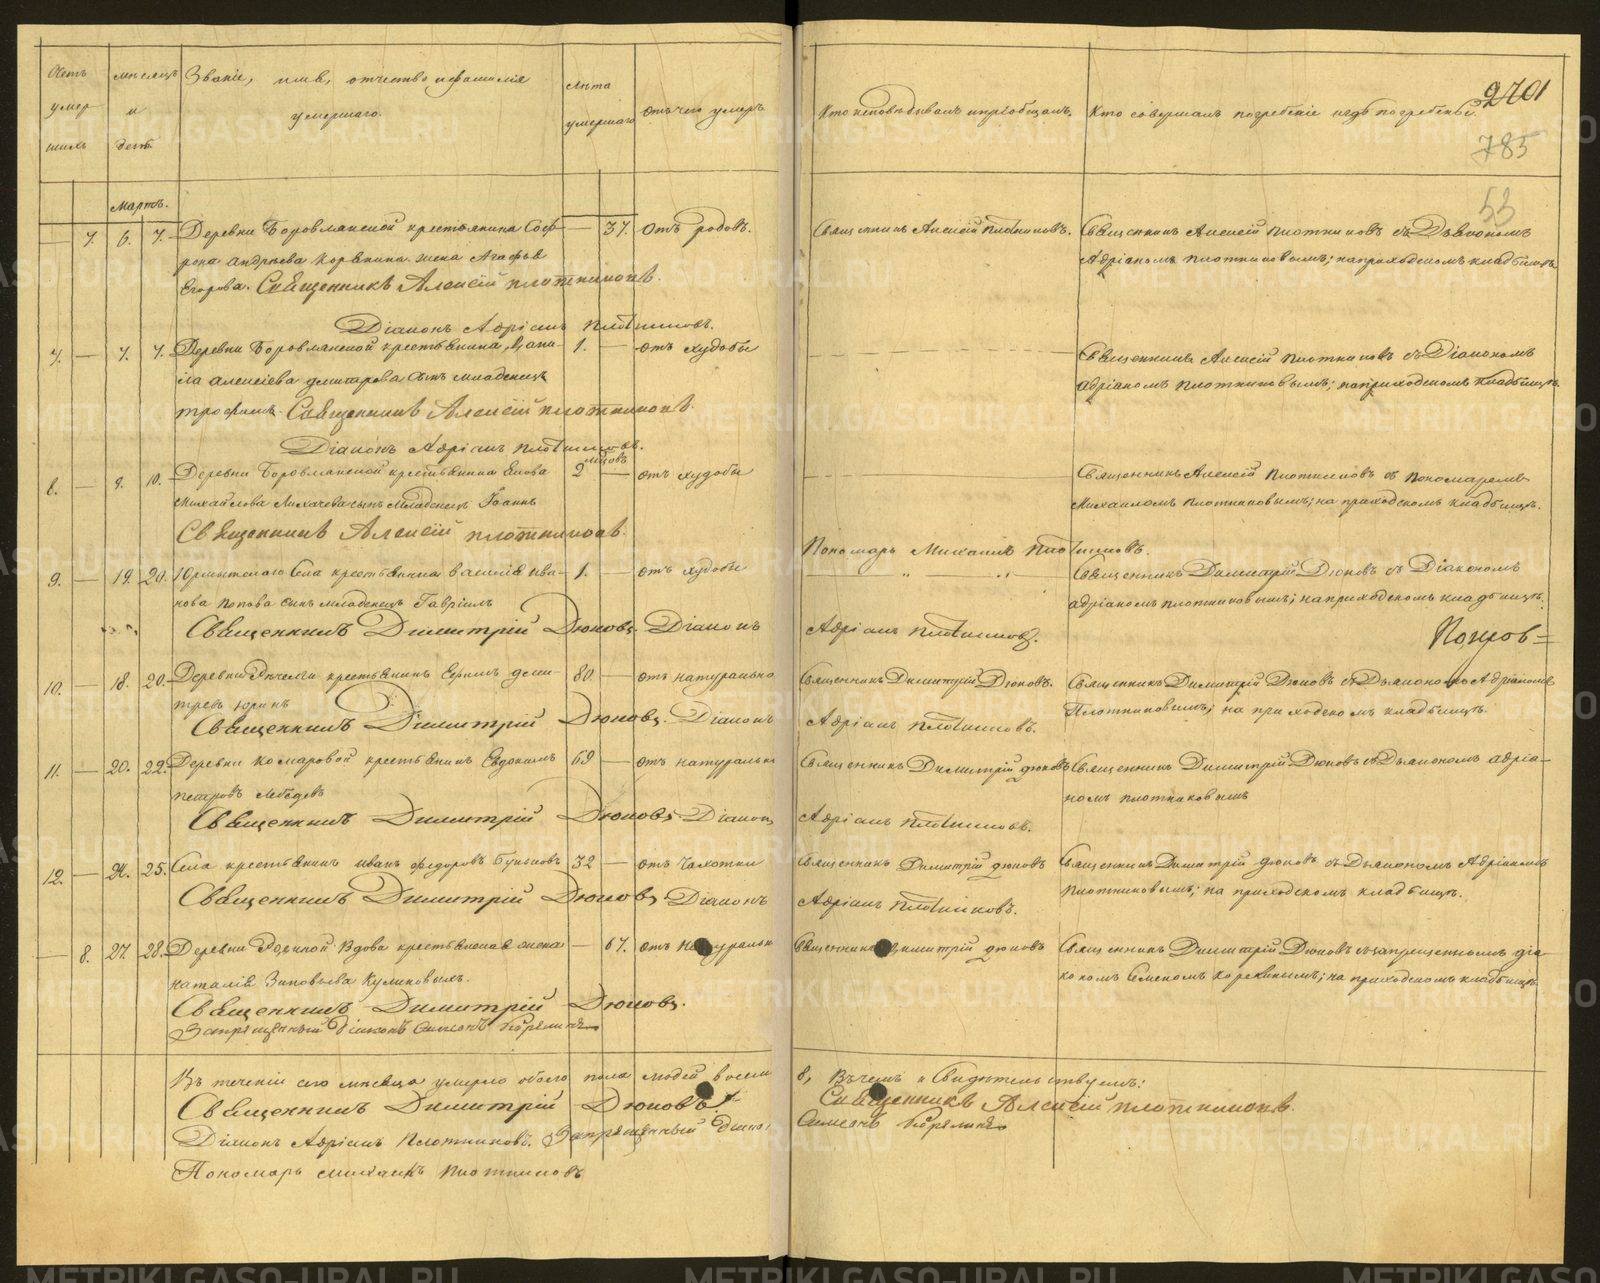 Счетъ умершихъ
мѣсяцъ и день
Званіе, имя, отчество и фамилія
умершаго.
Лѣта умершаго
Отъ чего умеръ
Кто исповѣдывалъ и пріобщалъ.
Кто совершалъ погребеніе и гдѣ погребены.
2701
785
53
Мартъ.
— 7. 6. 7. Деревни Боровлянской крестьянина Соф- — 37. Отъ родовъ. Священникъ Алексій Плотниковъ. Священникъ Алексій Плотниковъ съ Дьякономъ
рона Андреева Корякина жена Агафья
Адріаномъ Плотниковымъ; на приходскомъ кладбищѣ
Егорова. Священникъ Алексій Плотниковъ.
Діаконъ Адріанъ Плотниковъ.
7. — 7. 7. Деревни Боровлянской крестьянина Дани- 1. — отъ худобы — Священникъ Алексій Плотниковъ съ Діакономъ
ила Алексіева Дмитрова сынъ младенецъ
Адріаномъ Плотниковымъ; на приходскомъ кладбищѣ.
Трофимъ. Священникъ Алексій Плотниковъ.
Діаконъ Адріанъ Плотниковъ.
8. — 9. 10. Деревни Боровлянской крестьянина Іакова 2 мѣсяцовъ — отъ худобы — Священникъ Алексій Плотниковъ съ пономаремъ
Михайлова Лихачева сынъ младенецъ Іоаннъ
Михаиломъ Плотниковымъ; на приходскомъ кладбищѣ.
Священникъ Алексій Плотниковъ.
Пономарь Михаилъ Плотниковъ.
9. — 19. 20. Юрмытскаго Села крестьянина Василія Ива- 1. — отъ худобы — " — " — Священникъ Димитрій Дюковъ съ Діакономъ
нова Попова сынъ младенецъ Гавріилъ
Адріаномъ Плотниковымъ; на приходскомъ кладбищѣ.
Священникъ Димитрій Дюковъ. Діаконъ Адріанъ Плотниковъ.
10. — 18. 20. Деревни крестьянинъ Ефимъ Дми- 80. — отъ натурально Священникъ Димитрій Дюковъ. Священникъ Димитрій Дюковъ съ Дьякономъ Адріаномъ
тревъ Юринъ
Плотниковымъ; на приходскомъ кладбищѣ.
Священникъ Димитрій Дюковъ. Діаконъ Адріанъ Плотниковъ.
11. — 20. 22. Деревни Комаровой крестьянинъ Евдокимъ 69 — отъ натуральн Священникъ Димитрій Дюковъ Священникъ Димитрій Дюковъ съ Дьякономъ Адріа-
Петровъ Лебедевъ
номъ Плотниковымъ
Священникъ Димитрій Дюковъ. Діаконъ Адріанъ Плотниковъ.
12. — 24. 25. Села крестьянинъ Иванъ Федоровъ Буньковъ 32 — отъ Чахотки Священникъ Димитрій Дюковъ Священникъ Димитрій Дюковъ съ Дьякономъ Адріаномъ
Плотниковымъ; на приходскомъ кладбищѣ.
Священникъ Димитрій Дюковъ. Діаконъ Адріанъ Плотниковъ.
— 8. 27. 28. Деревни вдова крестьянская жена — 67. отъ натуральн Священникъ Димитрій Дюковъ Священникъ Димитрій Дюковъ съ запрещеннымъ діа-
Наталія Зиновьева Куликовыхъ.
кономъ Симеономъ Корякинымъ; на приходскомъ кладбищѣ.
Священникъ Димитрій Дюковъ.
Запрещенный Діаконъ Симеонъ Корякинъ
Въ теченіи сего мѣсяца умерло обоего пола людей восемь 8, Въ чемъ и Свидѣтельствуемъ:
Священникъ Димитрій Дюковъ. Священникъ Алексій Плотниковъ.
Діаконъ Адріанъ Плотниковъ. Запрещенный Діаконъ Симеонъ Корякинъ
Пономарь Михаилъ Плотниковъ
METRIKI.GASO-URAL.RU